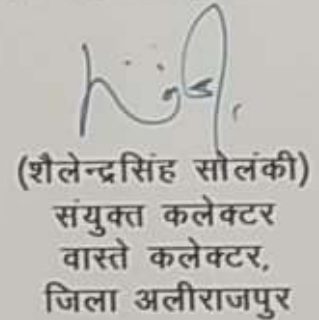 (शैलेन्द्रसिंह सोलंकी)
संयुक्त कलेक्टर
वास्ते कलेक्टर,
जिला अलीराजपुर